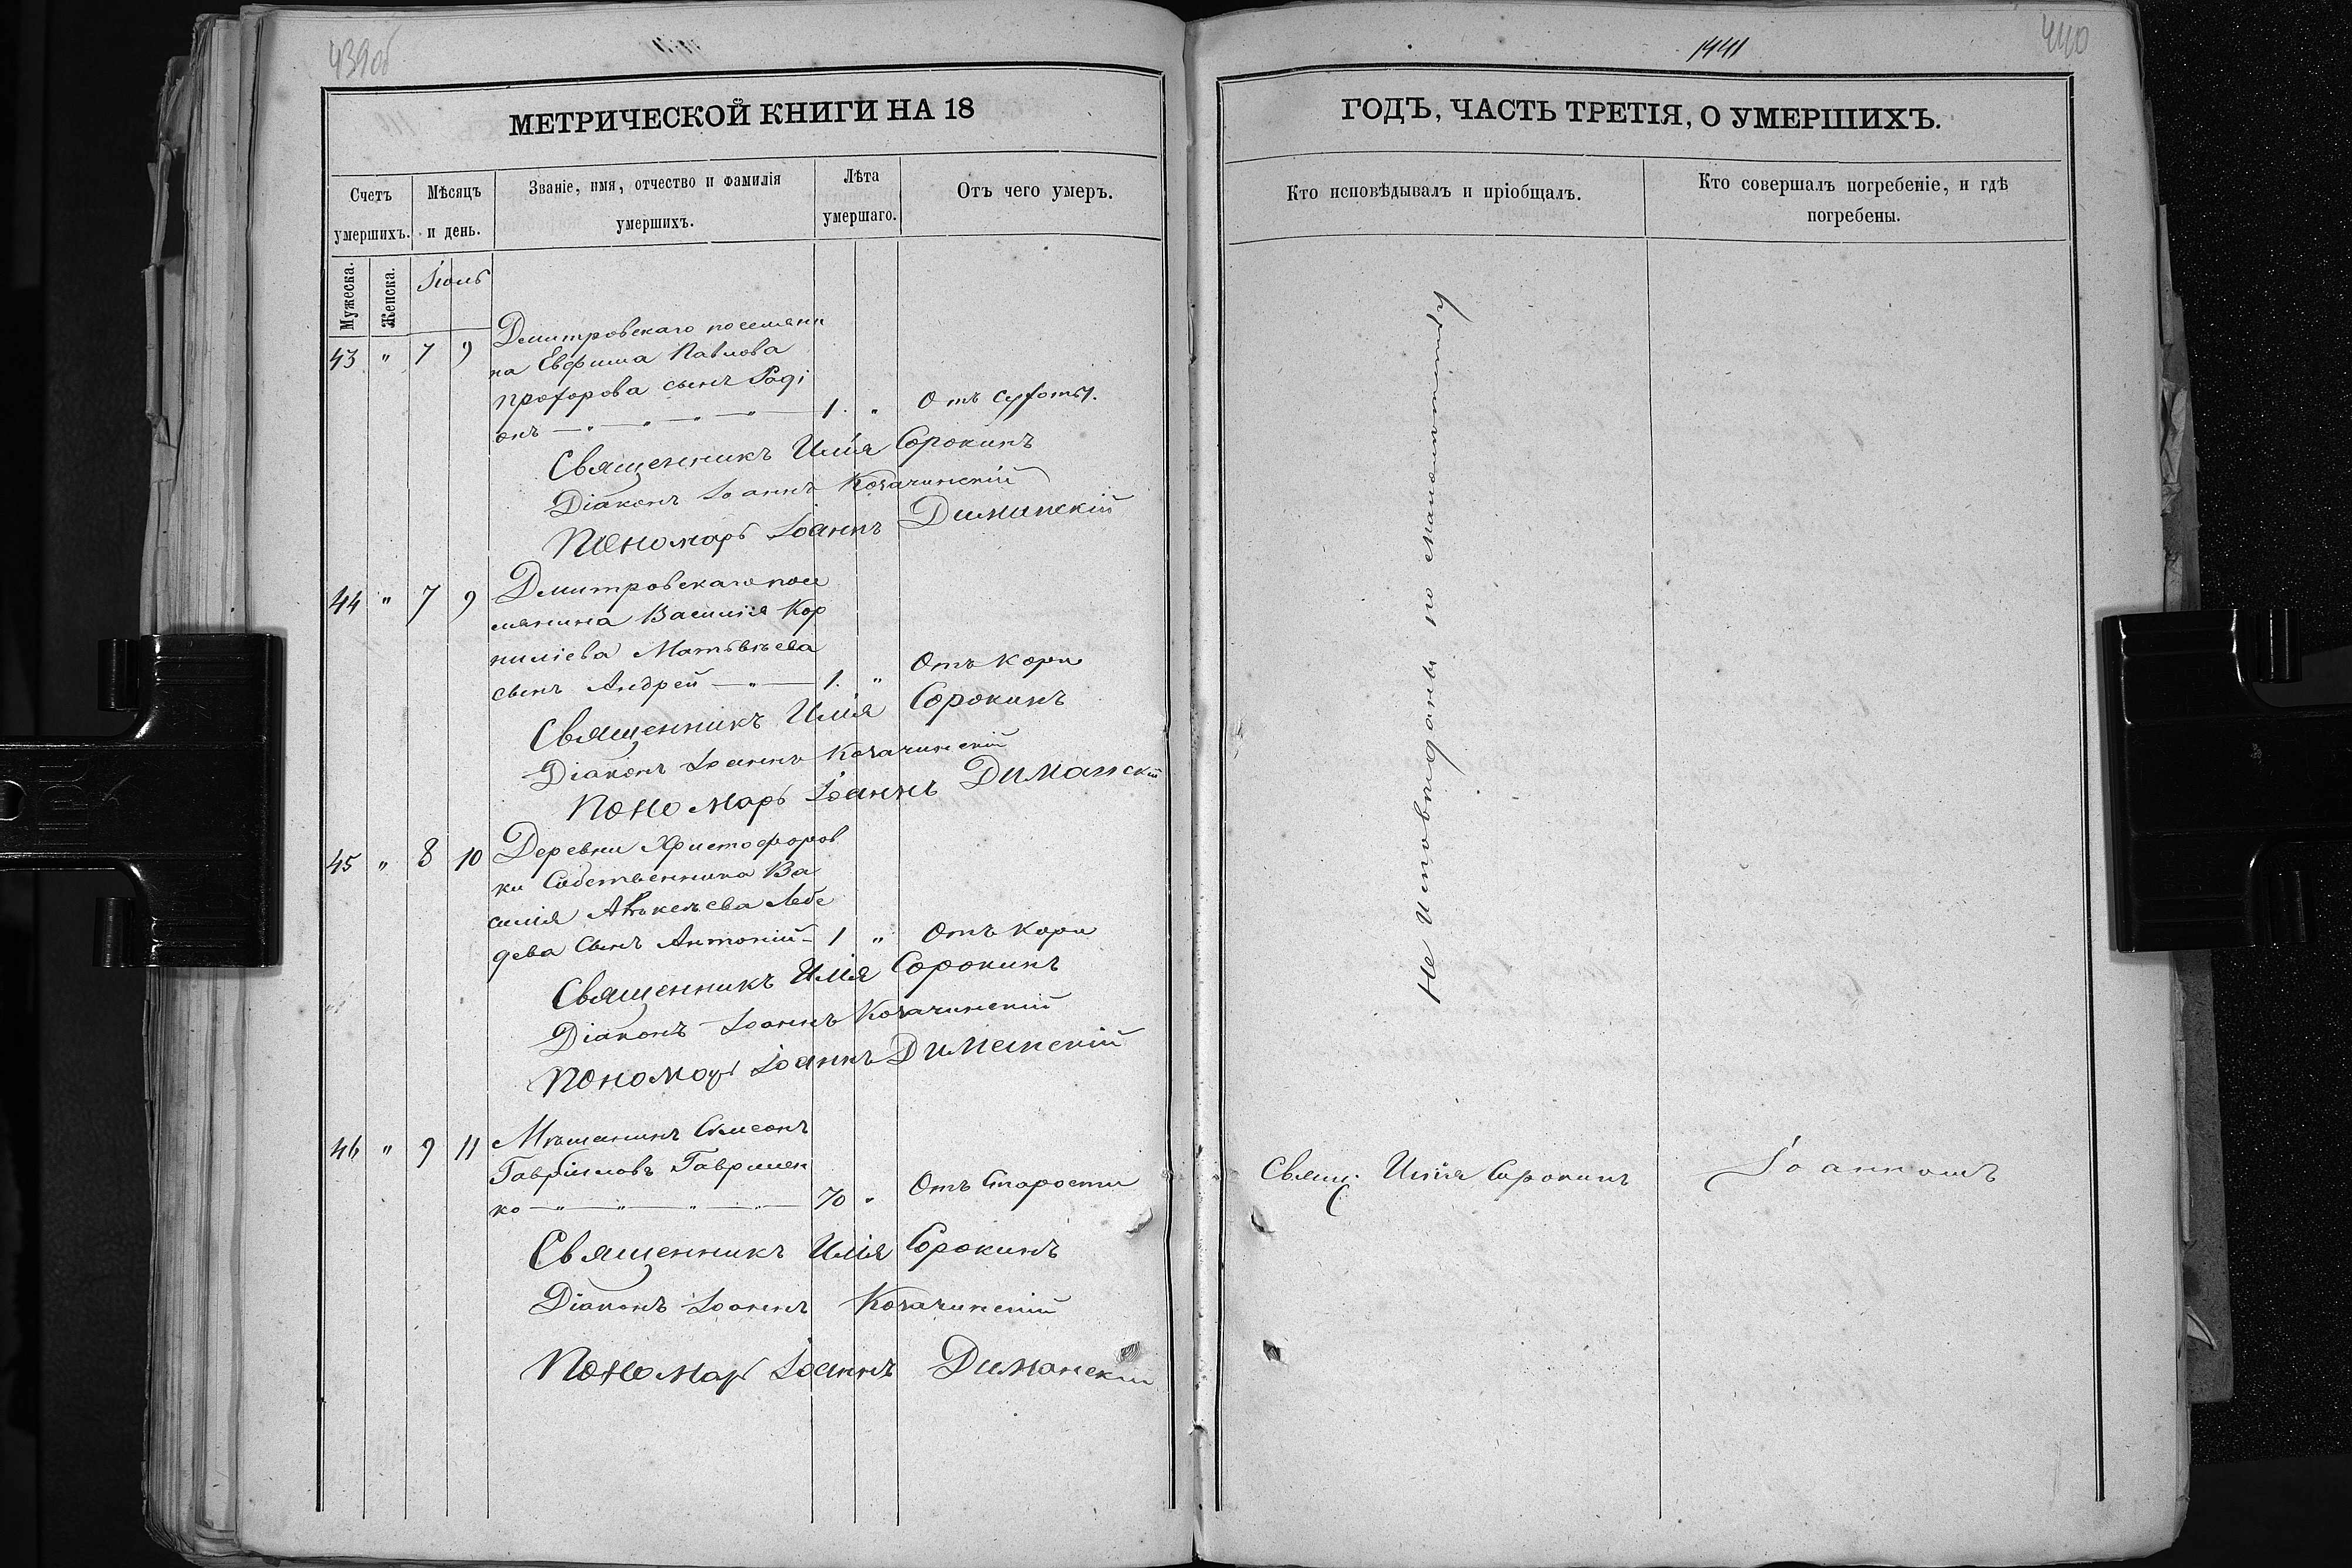 439об
МЕТРИЧЕСКОЙ КНИГИ НА 18
Счетъ умершихъ.
Мѣсяцъ и день.
Званіе, имя, отчество и фамилія умершихъ.
Лѣта умершаго.
Отъ чего умеръ.
Мужеска.
Женска.
Іюль
43 " 7 9 Дмитровскаго поселяни
на Евфима Павлова
Прохорова сынъ Роді
онъ — " — " — " — 1. " Отъ сухоты.
Священникъ Илія Сорокинъ
Діаконъ Іоаннъ Козачинскій
Пономарь Іоаннъ Диманскій
44 " 7 9 Дмитровскаго посе
лянина Василія Кор
ниліева Матвѣева
сынъ Андрей — " — 1. " Отъ кори
Священникъ Илія Сорокинъ
Діаконъ Іоаннъ Козачинскій
Пономарь Іоаннъ Диманскій
45 " 8 10 Деревни Христофоров
ки Собственника Ва
силія Лебе
дева сынъ Антоній - 1 " Отъ кори
Священникъ Илія Сорокинъ
Діаконъ Іоаннъ Козачинскій
Пономарь Іоаннъ Диманскій
46 " 9 11 Мѣщанинъ Симеонъ
Гавріиловъ Гаврилен
ко — " — " — " — " — 70 " Отъ Старости
Священникъ Илія Сорокинъ
Діаконъ Іоаннъ Козачинскій
Пономарь Іоаннъ Диманскій
1441
440
ГОДЪ, ЧАСТЬ ТРЕТІЯ, О УМЕРШИХЪ.
Кто исповѣдывалъ и пріобщалъ.
Кто совершалъ погребеніе, и гдѣ погребены.
Не исповѣданы по малолѣтству
Свящ. Илія Сорокинъ